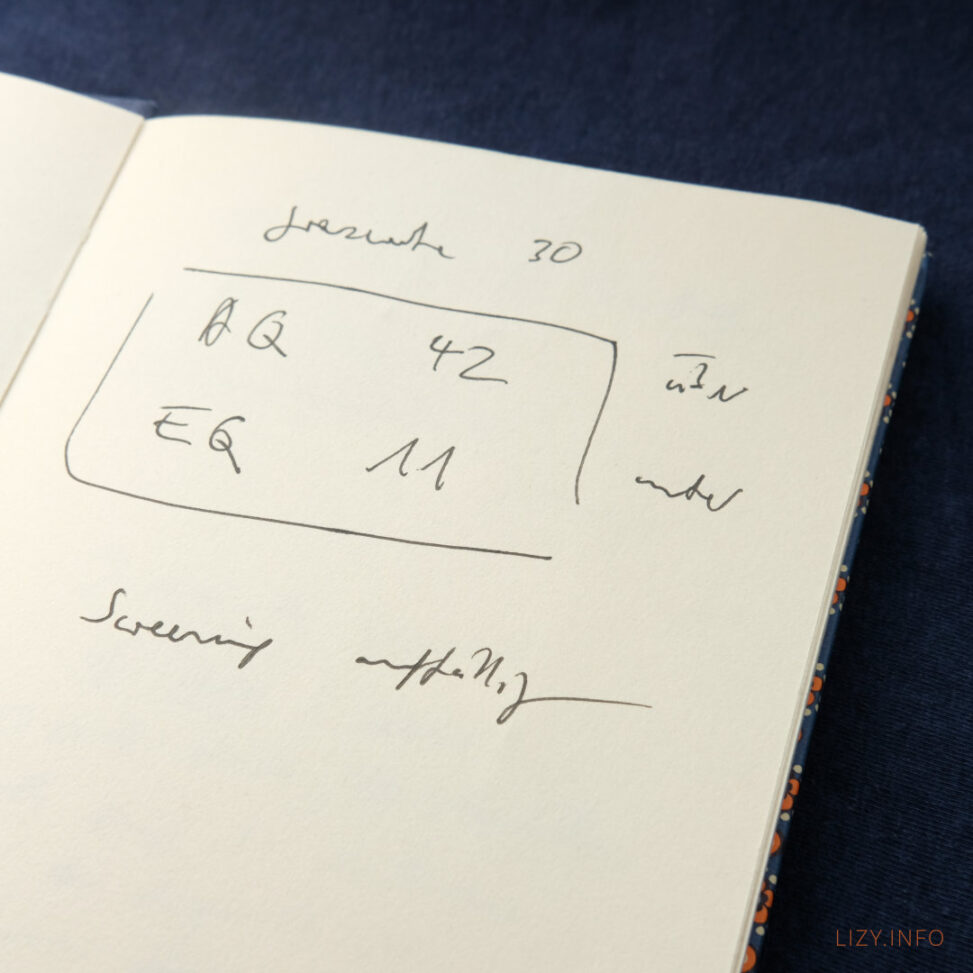 Grenzwerte 30
AQ 42 über
EQ 11 unter
Screening auffällig
LIZY.INFO